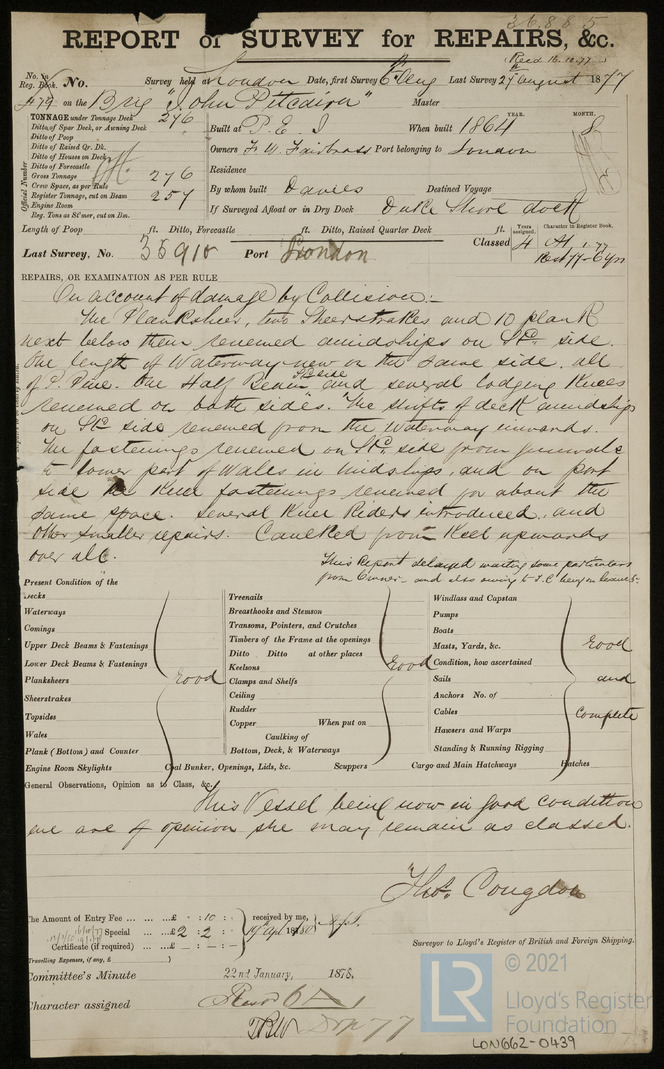 36885
REPORT of SURVEY for REPAIRS, &c.
Recd 16.10.77
No. in Reg. Book. No. Survey held at London Date, first Survey 6th Aug Last Survey 27th August 1877
479 on the Brig "John Pitcairn" Master
TONNAGE under Tonnage Deck 276
Ditto of Spar Deck, or Awning Deck
Ditto of Poop
Ditto of Raised Qr. Dk.
Ditto of Houses on Deck
Ditto of Forecastle
Gross Tonnage 276
Crew Space, as per Rule
Register Tonnage, cut on Beam 257
Engine Room
Reg. Tons as St'mer, cut on Bm.
Official Number
YEAR. MONTH.
Built at P. E. I When built 1864
Owners F. W. Fairbrass Port belonging to London
Residence
By whom built Davies Destined Voyage
If Surveyed Afloat or in Dry Dock Duke Shore dock
Length of Poop ft. Ditto, Forecastle ft. Ditto, Raised Quarter Deck ft.
Last Survey, No. 35910 Port London
Classed Years assigned. 4 Character in Register Book, A1 1.77
Rest 77-6yrs
REPAIRS, OR EXAMINATION AS PER RULE
On account of damage by Collision:-
The Planksheer, two Sheerstrakes and 10 plank
next below them renewed amidships on Stc. side.
One length of Waterway new on the same side. all
of P. Pine. One Half Beam Stc side and several lodging Knees
renewed on both sides. The shifts of deck amidships
on Stc side renewed from the waterway inwards.
The fastenings renewed on Stc. side from gunwale
to lower part of Wales in midships, and on port
side the Knee fastenings renewed for about the
same space. Several Knee Riders introduced, and
other smaller repairs. Caulked from Keel upwards
over all.
This Report delayed waiting some particulars
from Owner - and also owing to T.C being on leave.
Present Condition of the
Decks
Waterways
Comings
Upper Deck Beams & Fastenings
Lower Deck Beams & Fastenings
Planksheers Good
Sheerstrakes
Topsides
Wales
Plank (Bottom) and Counter
Engine Room Skylights
Treenails
Breasthooks and Stemson
Transoms, Pointers, and Crutches
Timbers of the Frame at the openings
Ditto Ditto at other places
Keelsons Good
Clamps and Shelfs
Ceiling
Rudder
Copper When put on
Caulking of
Bottom, Deck, & Waterways
Coal Bunker, Openings, Lids, &c. Scuppers
Windlass and Capstan
Pumps
Boats
Masts, Yards, &c. Good
Condition, how ascertained
Sails and
Anchors No. of
Cables Complete
Hawsers and Warps
Standing & Running Rigging
Cargo and Main Hatchways Hatches
General Observations, Opinion as to Class, &c.
This Vessel being now in good condition
we are of opinion she may remain as classed.
Thos. Congdon
Surveyor to Lloyd's Register of British and Foreign Shipping.
The Amount of Entry Fee £ : 10 :
Special £ 2 : 2 :
Certificate (if required) £
Travelling Expenses, if any, £
received by me,
Committee's Minute 22nd January, 1878.
Character assigned
© 2021
LR
Lloyd's Register
Foundation
LON662-0439